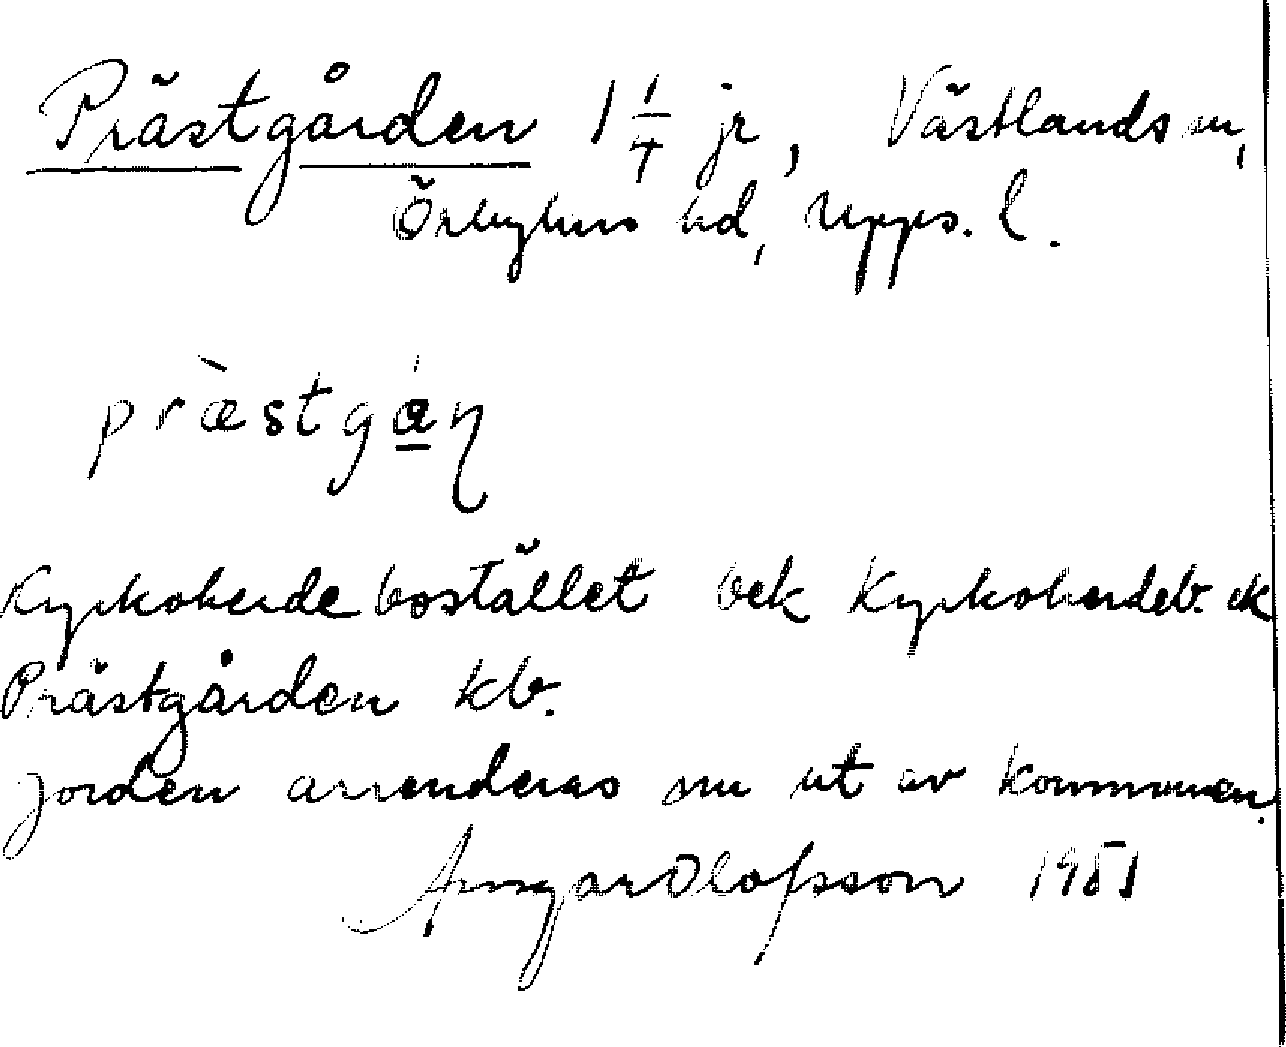 Prästgården 1 1/4 jr, Västlands sn,
Örbyhus hd, Upps. l.
præ̀stgá̱ɳ
Kyrkoherdebostället bek Kyrkoherdeb. ek
Prästgården kb.
Jorden arrenderas nu ut av kommunen.
Ansgar Olofsson 1951